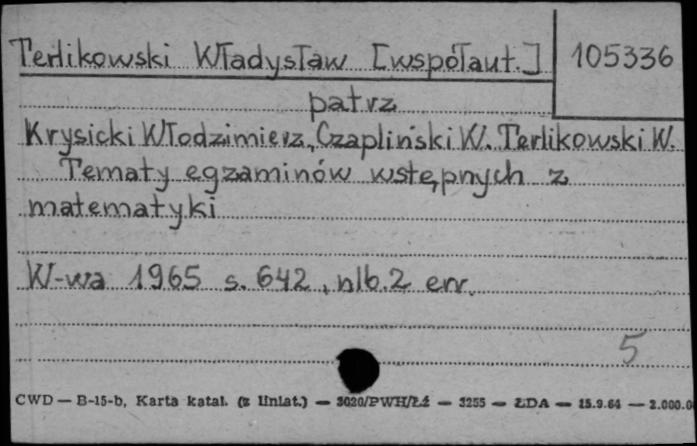 Terlikowski Władysław [współaut.] 105336
patrz
Krysicki Włodzimierz, Czapliński W. Terlikowski W.
Tematy egzaminów wstępnych z
matematyki
W-wa 1965 s. 642, nlb. 2 err.
5
CWD — B-15-b, Karta katal. (z liniat.) — 3020/PWH/Łź — 3255 — ŁDA — 15.9.64 — 2.000.0